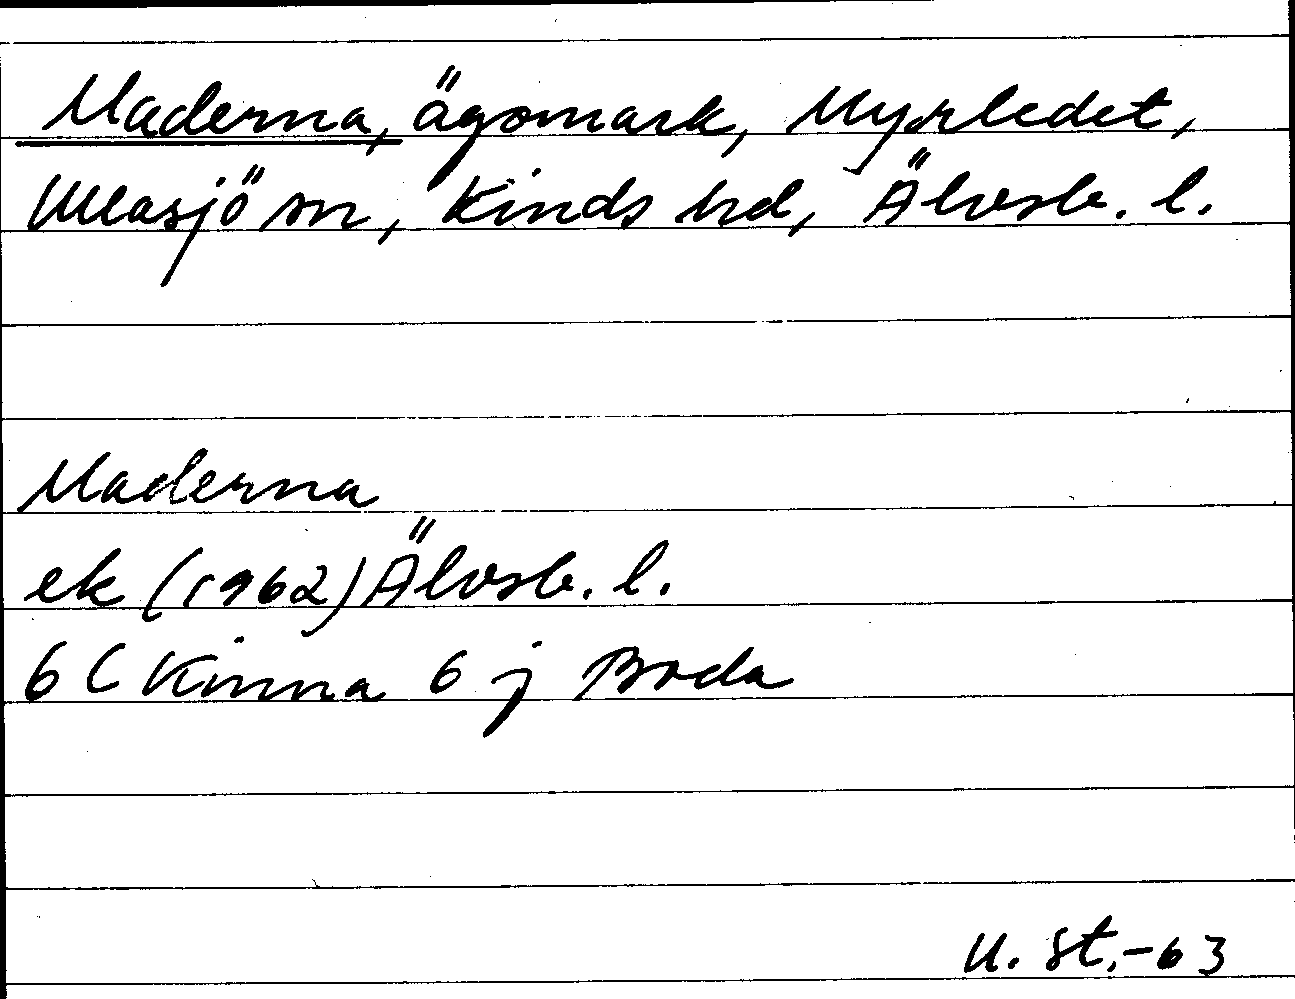 Maderna, ägomark, Myrledet,
Ullasjö sn, Kinds hd, Älvsb. l.
Maderna
ek (1962) Älvsb. l.
6 C Kinna 6 j Boda
U. St. -63